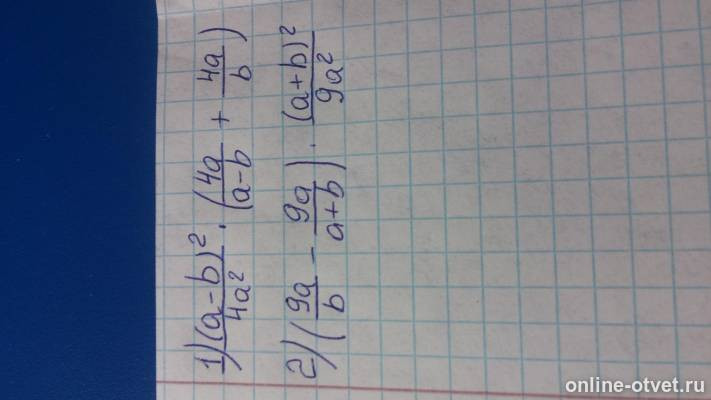 1) (a-b)²/4a² · (4a/a-b + 4a/b)
2) (9a/b - 9a/a+b) · (a+b)²/9a²
online-otvet.ru